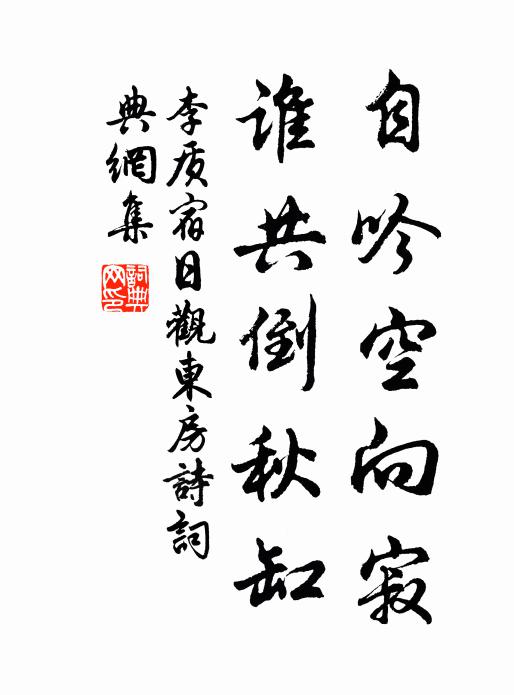 自吟空向寂
誰共倒秋缸
李质宿日觀東房詩詞
典網集
詞典
网印